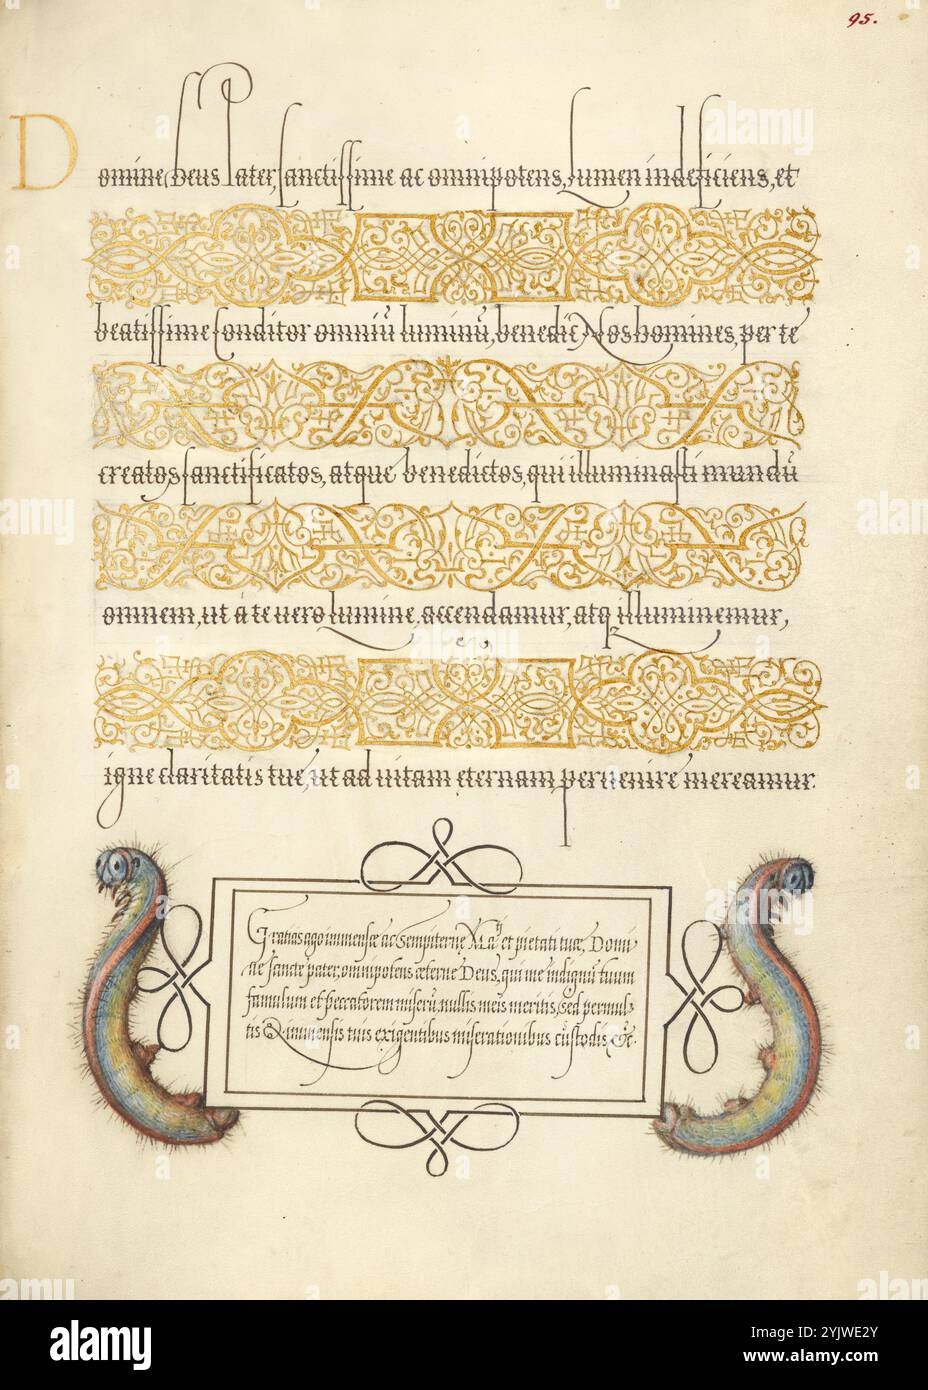 95.
Domine Deus Pater, sanctissime ac omnipotens, Lumen indeficiens, et
beatissime Conditor omniū luminū, benedic Nos homines, per te
creatos, sanctificatos, atque benedictos, qui illuminasti mundū
omnem, ut á te vero Lumine, accendamur, atq illuminemur,
igne claritatis tuę, ut ad vitam ęternam pervenire mereamur.
Gratias ago immensæ ac sempiternę Ma.ti et pietati tuæ, Domi-
ne sancte pater, omnipotens æterne Deus, qui me indignū tuum
famulum et peccatorem miserū, nullis meis meritis, sed permul-
tis & immensis tuis exigentibus miserationibus custodis, &c.
alamy
alamy
Image ID: 2YJWE2Y
www.alamy.com